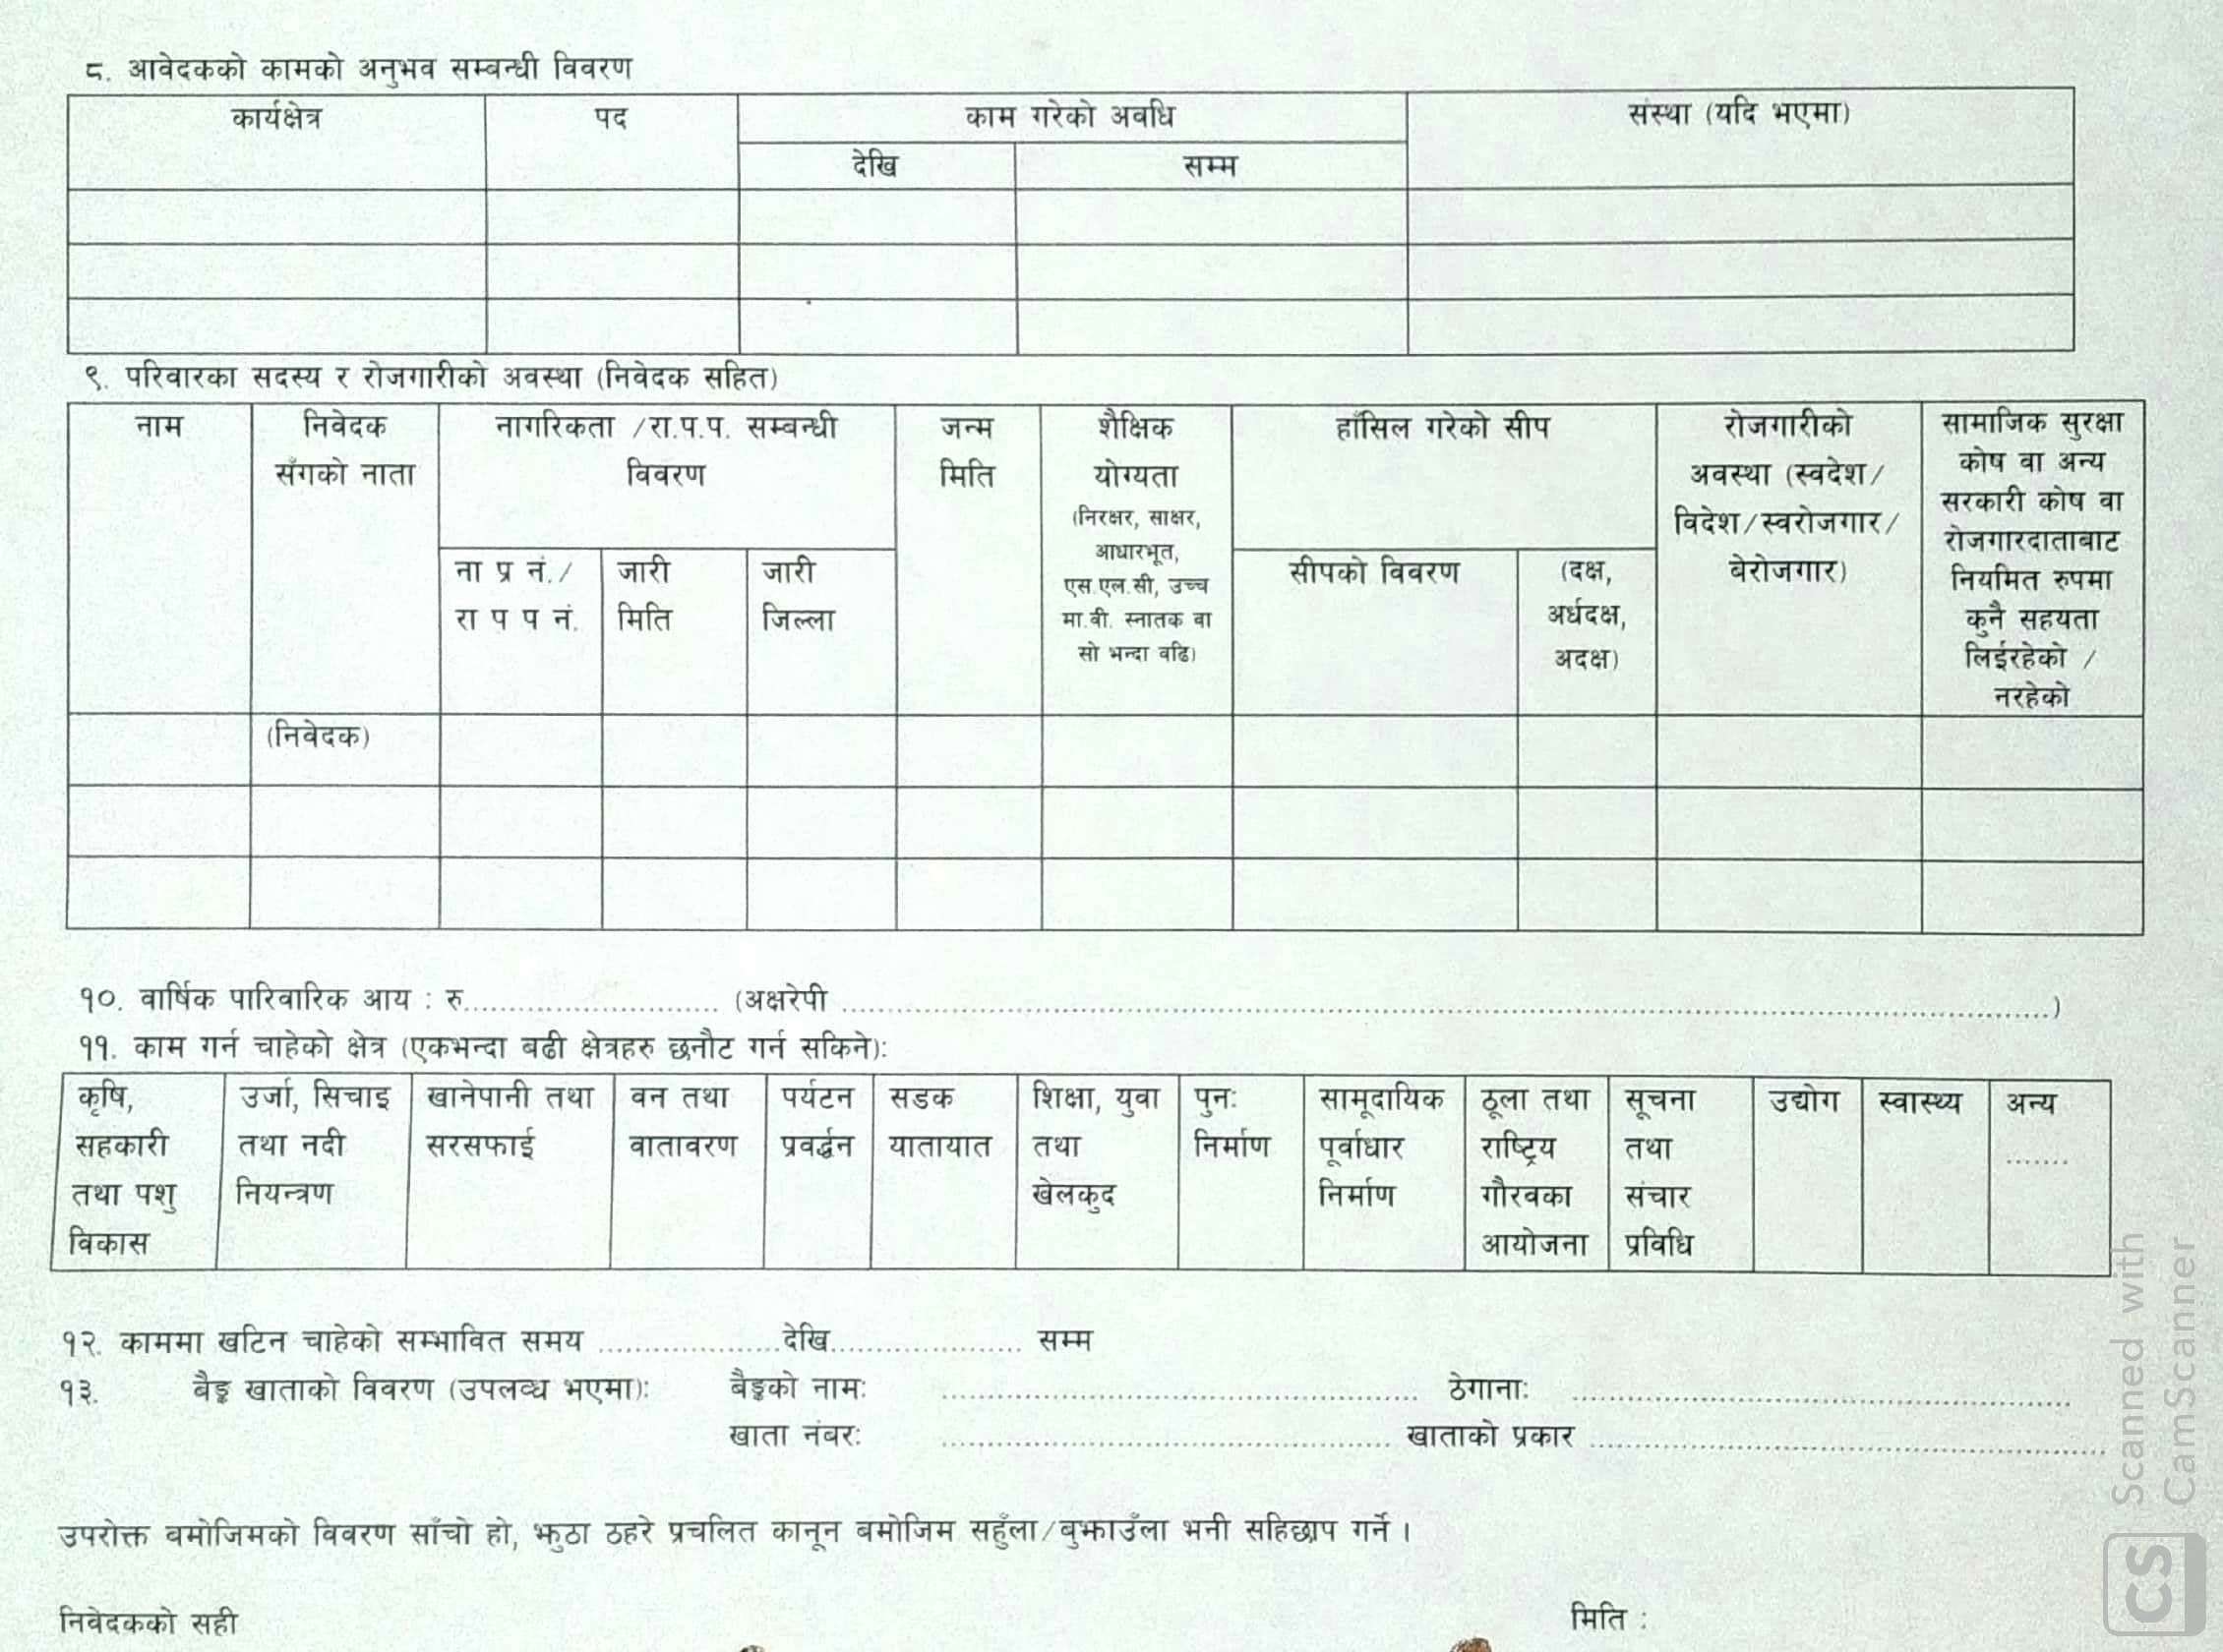 ८. आवेदकको कामको अनुभव सम्बन्धी विवरण
कार्यक्षेत्र पद काम गरेको अवधि संस्था (यदि भएमा)
देखि सम्म
९. परिवारका सदस्य र रोजगारीको अवस्था (निवेदक सहित)
नाम निवेदक नागरिकता /रा.प.प. सम्बन्धी जन्म शैक्षिक हाँसिल गरेको सीप रोजगारीको सामाजिक सुरक्षा
सँगको नाता विवरण मिति योग्यता अवस्था (स्वदेश/ कोष वा अन्य
(निरक्षर, साक्षर, विदेश/स्वरोजगार/ सरकारी कोष वा
आधारभूत, बेरोजगार) रोजगारदाताबाट
ना प्र नं./ जारी जारी एस.एल.सी, उच्च सीपको विवरण (दक्ष, नियमित रुपमा
रा प प नं. मिति जिल्ला मा.बी. स्नातक वा अर्धदक्ष, कुनै सहयता
सो भन्दा वढि) अदक्ष) लिईरहेको /
नरहेको
(निवेदक)
१०. वार्षिक पारिवारिक आय : रु........................... (अक्षरेपी ....................................................................................................)
११. काम गर्न चाहेको क्षेत्र (एकभन्दा बढी क्षेत्रहरु छनौट गर्न सकिने):
कृषि, उर्जा, सिचाइ खानेपानी तथा वन तथा पर्यटन सडक शिक्षा, युवा पुनः सामूदायिक ठूला तथा सूचना उद्योग स्वास्थ्य अन्य
सहकारी तथा नदी सरसफाई वातावरण प्रवर्द्धन यातायात तथा निर्माण पूर्वाधार राष्ट्रिय तथा .......
तथा पशु नियन्त्रण खेलकुद निर्माण गौरवका संचार
विकास आयोजना प्रविधि
१२. काममा खटिन चाहेको सम्भावित समय ....................देखि..................... सम्म
१३. बैङ्क खाताको विवरण (उपलव्ध भएमा): बैङ्कको नाम: .................................................. ठेगाना: ....................................................
खाता नंबर: ............................................... खाताको प्रकार ......................................................
उपरोक्त बमोजिमको विवरण साँचो हो, झुठा ठहरे प्रचलित कानून बमोजिम सहुँला/बुझाउँला भनी सहिछाप गर्ने ।
निवेदकको सही मिति :
Scanned with
CamScanner
CS